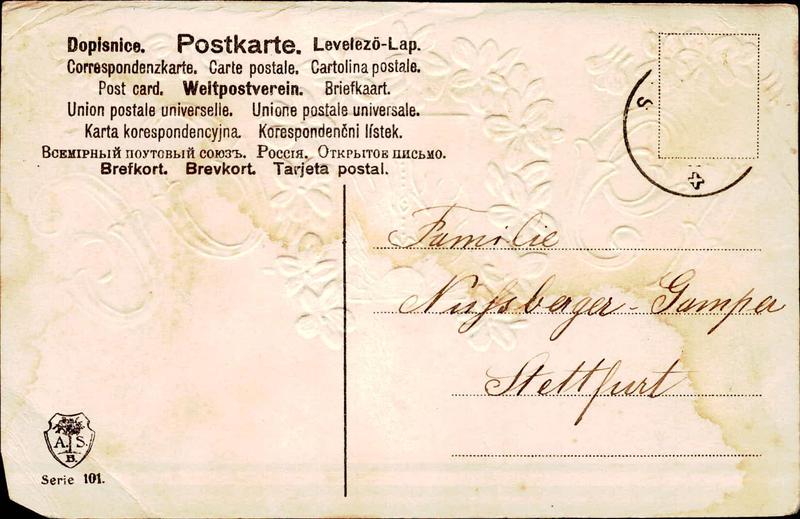 Dopisnice. Postkarte. Levelezö-Lap.
Correspondenzkarte. Carte postale. Cartolina postale.
Post card. Weltpostverein. Briefkaart.
Union postale universelle. Unione postale universale.
Karta korespondencyjna. Korespondenčni lístek.
Всемірный почтовый союзъ. Россія. Открытое письмо.
Brefkort. Brevkort. Tarjeta postal.
S
Familie
Nußberger-Gamper
Stettfurt
A. S.
B.
Serie 101.